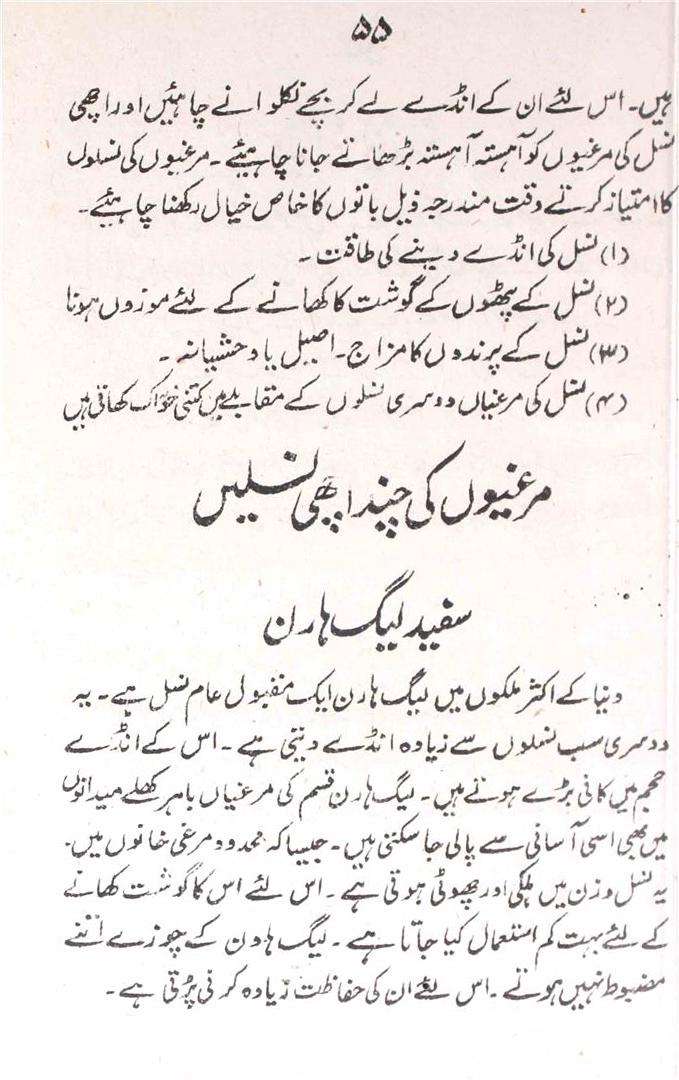 ۵۵
ہیں۔ اس لئے ان کے انڈے لے کر بچے نکلوانے چاہئیں اور اچھی
نسل کی مرغیوں کو آہستہ آہستہ بڑھاتے جانا چاہیئے۔ مرغیوں کی نسلوں
کا امتیاز کرتے وقت مندرجہ ذیل باتوں کا خاص خیال رکھنا چاہیئے۔
(۱) نسل کی انڈے دینے کی طاقت۔
(۲) نسل کے پٹھوں کے گوشت کا کھانے کے لئے موزوں ہونا
(۳) نسل کے پرندوں کا مزاج۔ اصیل یا وحشیانہ۔
(۴) نسل کی مرغیاں دوسری نسلوں کے مقابلے میں کتنی خوراک کھاتی ہیں
مرغیوں کی چند اچھی نسلیں
سفید لیگ ہارن
دنیا کے اکثر ملکوں میں لیگ ہارن ایک مقبول عام نسل ہے۔ یہ
دوسری سب نسلوں سے زیادہ انڈے دیتی ہے۔ اس کے انڈے
حجم میں کافی بڑے ہوتے ہیں۔ لیگ ہارن قسم کی مرغیاں باہر کھلے میدانوں
میں بھی اسی آسانی سے پالی جا سکتی ہیں۔ جیسا کہ محدود مرغی خانوں میں۔
یہ نسل وزن میں ہلکی اور چھوٹی ہوتی ہے۔ اس لئے اس کا گوشت کھانے
کے لئے بہت کم استعمال کیا جاتا ہے۔ لیگ ہارن کے چوزے اتنے
مضبوط نہیں ہوتے۔ اس لئے ان کی حفاظت زیادہ کرنی پڑتی ہے۔